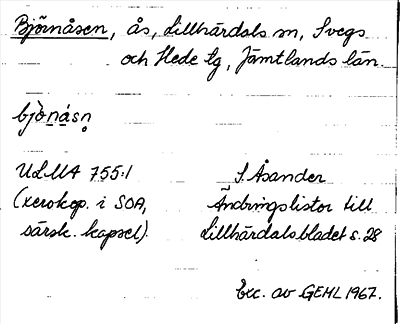 Björnåsen, ås, Lillhärdals sn, Svegs
och Hede tg, Jämtlands län.
bjὸnásn̥
ULMA 755:1
(xerokop. i SOA,
särsk. kapsel).
S. Åsander
Ändringslistor till
Lillhärdalsbladet s. 28
Exc. av GEHL 1967.